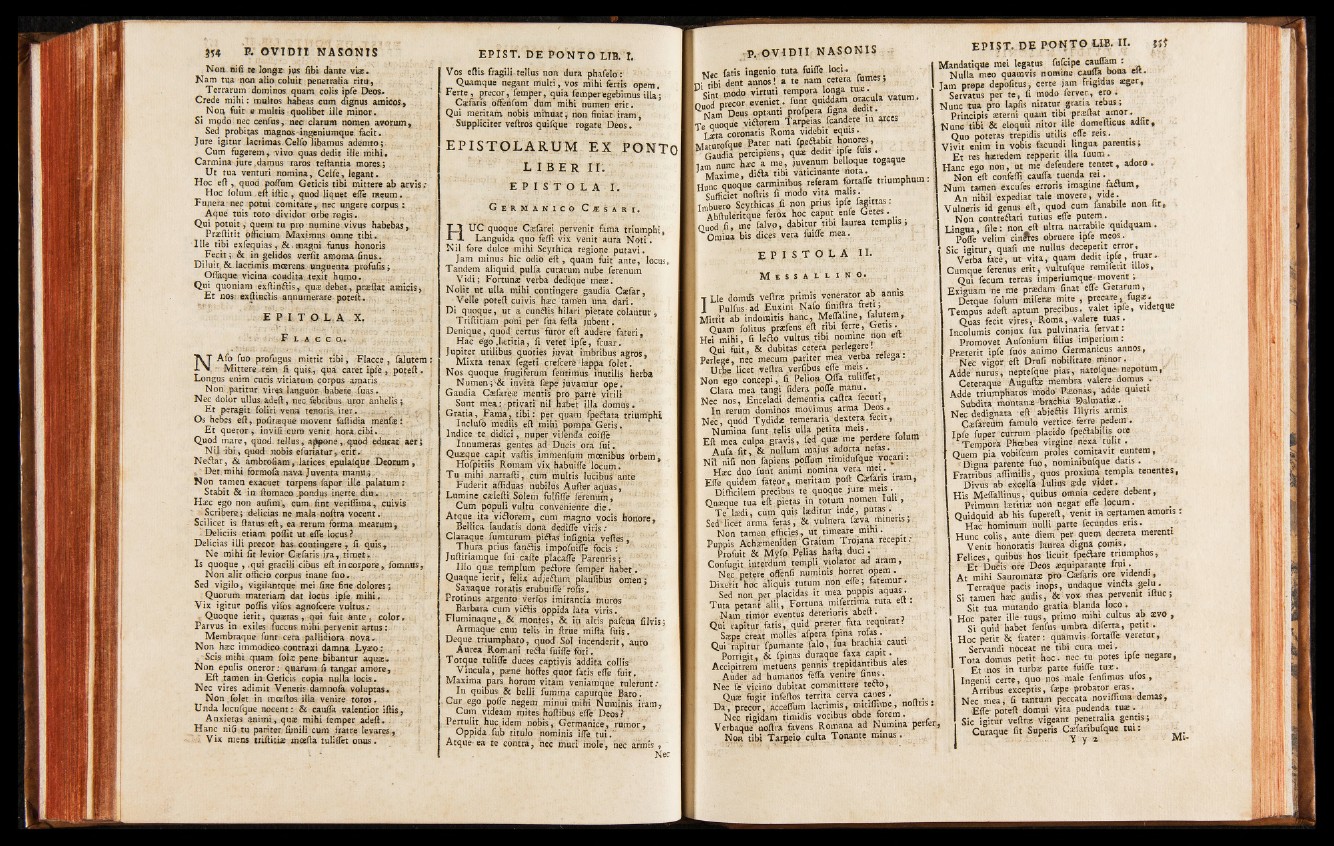 354 P. OVIDII NASONIS
Non nisi te longæ jus sibi dante viæ.
Nam tua non alio coluit penetralia ritu,
Terrarum dominos quam colis ipse Deos.
Crede mihi: multos habeas cum dignus amicos,
Non fuit e multis quolibet ille minor.
Si modo nec census, nec clarum nomen avorum,
Sed probitas magnos ingeniumque facit.
Jure igitur lacrimas Celso libamus ademto;
Cum fugerem, vivo quas dedit ille mihi.
Carmina jure damus raros testantia mores;
Ut tua venturi nomina, Celse, legant.
Hoc est, quod possum Geticis tibi mittere ab arvis:
Hoc solum est istic, quod liquet esse meum.
Funera nec potui comitare, nec ungere corpus:
Aque tuis toto dividor orbe rogis.
Qui potuit, quem tu pro numine vivus habebas,
Præstitit officium Maximus omne tibi.
Ille tibi exsequias, & magni funus honoris
Fecit; & in gelidos versit amoma sinus.
Diluit & lacrimis mœrens unguenta profusis;
Ossaque vicina condita texit humo.
Qui quoniam exstinctis, quæ debet, præstat amicis;
Et nos exstinctis annumerare potest.
EPITOLA X.
FLACCO.
NAso suo profugus mittit tibi, Flacce, salutem:
Mittere rem si quis, qua caret ipse, potest.
Longus enim curis vitiatum corpus amaris
Non patitur vires languor habere suas.
Nec dolor ullus adest, nec febribus uror anhelis;
Et peragit soliti vena tenoris iter.
Os hebes est, positæque movent fastidia mensæ:
Et queror, invisi cum venit hora cibi.
Quod mare, quod tellus, appone, quod educat aer;
Nil ibi, quod nobis esuriatur, erit.
Nectar, & ambrosiam, latices epulasque Deorum,
Det mihi formosa nava Juventa manu;
Non tamen exacuet torpens sapor ille palatum:
Stabit & in stomaco pondus inerte diu.
Hæc ego non ausim, cum sint verissima, cuivis
Scribere; delicias ne mala nostra vocent.
Scilicet is status est, ea rerum forma mearum,
Deliciis etiam possit ut esse locus?
Delicias illi precor has contingere, si quis,
Ne mihi sit levior Cæsaris ira, timet.
Is quoque, qui gracili cibus est in corpore, somnus,
Non alit officio corpus inane suo.
Sed vigilo, vigilantque mei sine fine dolores;
Quorum materiam dat locus ipse mihi.
Vix igitur possis visos agnoscere vultus:
Quoque ierit, quæras, qui fuit ante, color.
Parvus in exiles succus mihi pervenit artus:
Membraque sunt cera pallidiora nova.
Non hæc immodico contraxi damna Lyæo:
Scis mihi quam solæ pene bibantur aquæ.
Non epulis oneror: quarum si tangar amore,
Est tamen in Geticis copia nulla locis.
Nec vires adimit Veneris damnosa voluptas.
Non solet in mœstos illa venire toros.
Unda locusque nocent: & caussa valentior istis,
Anxietas animi, quæ mihi semper adest.
Hanc nisi tu pariter simili cum fratre levares,
Vix mens tristitiæ mœsta tulisset onus.
EPIST. DE PONTO LIB. I.
Vos estis fragili tellus non dura phaselo:
Quamque negant multi, vos mihi fertis opem.
Ferte, precor, semper, quia semper egebimus illa;
Cæsaris offensum dum mihi numen erit.
Qui meritam nobis minuat, non finiat iram,
Suppliciter vestros quisque rogate Deos.
EPISTOLARUM EX PONTO
LIBER II.
EPISTOLA I.
GERMANICO CÆSARI.
HUC quoque Cæsarei pervenit fama triumphi,
Languida quo fessi vix venit aura Noti.
Nil fore dulce mihi Scythica regione putavi.
Jam minus hic odio est, quam fuit ante, locus.
Tandem aliquid pulsa curarum nube serenum
Vidi; Fortunæ verba dedique meæ.
Nolit ut ulla mihi contingere gaudia Cæsar,
Velle potest cuivis hæc tamen una dari.
Di quoque, ut a cunctis hilari pietate colantur,
Tristitiam poni per sua festa jubent.
Denique, quod certus furor est audere fateri,
Hac ego lætitia, si vetet ipse, fruar.
Jupiter utilibus quoties juvat imbribus agros,
Mixta tenax segeti crescere lappa solet.
Nos quoque frugiferum sentimus inutilis herba
Numen; & invita sæpe juvamur ope.
Gaudia Cæsareæ mentis pro parte virili
Sunt mea: privati nil habet illa domus.
Gratia, Fama, tibi: per quam spectata triumphi
Incluso mediis est mihi pompa Getis.
Indice te didici, nuper visenda coisse
Innumeras gentes ad Ducis ora sui.
Quæque capit vastis immensum mœnibus orbem,
Hospitiis Romam vix habuisse locum.
Tu mihi narrasti, cum multis lucibus ante
Fuderit assiduas nubilus Auster aquas,
Lumine cælesti Solem fulsisse serenum,
Cum populi vultu conveniente die.
Atque ita victorem, cum magno vocis honore,
Bellica laudatis dona dedisse viris:
Claraque sumturum pictas insignia vestes,
Thura prius sanctis imposuisse focis:
Justitiamque sui caste placasse Parentis;
Illo quæ templum pectore semper habet.
Quaque ierit, felix adjectum plausibus omen;
Saxaque roratis erubuisse rosis.
Protinus argento versos imitantia muros
Barbara cum victis oppida lata viris.
Fluminaque, & montes, & in altis pascua silvis;
Armaque cum telis in strue mista suis.
Deque triumphato, quod Sol incenderit, auro
Aurea Romani tecta fuisse fori.
Totque tulisse duces captivis addita collis
Vincula, pæne hostes quot satis esse fuit.
Maxima pars horum vitam veniamque tulerunt:
In quibus & belli summa caputque Bato.
Cur ego posse negem minui mihi Numinis iram,
Cum videam mites hostibus esse Deos?
Pertulit huc idem nobis, Germanice, rumor,
Oppida sub titulo nominis isse tui.
Atque ea te contra, nec muri mole, nec armis,
Nec
P. OVIDII NASONIS
Nec satis ingenio tuta fuisse loci.
Di tibi dent annos! a te nam cetera sumes;
Sint modo virtuti tempora longa tuæ.
Quod precor eveniet. sunt quiddam oracula vatum.
Nam Deus optanti prospera signa dedit.
Te quoque victorem Tarpeias scandere in arces
Læta coronatis Roma videbit equis.
Maturosque Pater nati spectabit honores,
Gaudia percipiens, quæ dedit ipse suis.
Jam nunc hæc a me, juvenum belloque togaque
Maxime, dicta tibi vaticinante nota.
Hunc quoque carminibus referam fortasse triumphum:
Sufficiet nostris si modo vita malis.
Imbuero Scythicas si non prius ipse sagittas:
Abstuleritque ferox hoc caput ense Getes.
Quod si, me salvo, dabitur tibi laurea templis;
Omina bis dices vera fuisse mea.
EPISTOLA II.
MESSALLINO.
ILle domûs vestræ primis venerator ab annis
Pulsus ad Euxini Naso sinistra freti;
Mittit ab indomitis hanc, Messaline, salutem,
Quam solitus præsens est tibi ferre, Getis.
Hei mihi, si lecto vultus tibi nomine non est
Qui fuit, & dubitas cetera perlegere!
Perlege, nec mecum pariter mea verba relega:
Urbe licet vestra versibus esse meis.
Non ego concepi, si Pelion Ossa tulisset,
Clara mea tangi sidera posse manu.
Nec nos, Enceladi dementia castra secuti,
In rerum dominos movimus arma Deos.
Nec, quod Tydidæ temeraria dextera fecit,
Numina sunt telis ulla petita meis.
Est mea culpa gravis, sed quæ me perdere solum
Ausa sit, & nullum majus adorta nefas.
Nil nisi non sapiens possum timidusque vocari:
Hæc duo sunt animi nomina vera mei.
Esse quidem fateor, meritam post Cæsaris iram,
Difficilem precibus te quoque jure meis.
Quæque tua est pietas in totum nomen Iuli,
Te lædi, cum quis læditur inde, putas.
Sed licet arma feras, & vulnera sæva mineris;
Non tamen efficies, ut timeare mihi.
Puppis Achæmeniden Graium Trojana recepit:
Profuit & Myso Pelias hasta duci.
Confugit interdum templi violator ad aram,
Nec petere offensi numinis horret opem.
Dixerit hoc aliquis tutum non esse; fatemur.
Sed non per placidas it mea puppis aquas.
Tuta petant alii, Fortuna miserrima tuta est:
Nam timor eventus deterioris abest.
Qui rapitur fatis, quid præter fata requirat?
Sæpe creat molles aspera spina rosas.
Qui rapitur spumante salo, sua brachia cauti
Porrigit, & spinas duraque saxa capit.
Accipitrem metuens pennis trepidantibus ales
Audet ad humanos fessa venire sinus.
Nec se vicino dubitat committere tecto,
Quæ fugit infestos territa cerva canes.
Da, precor, accessum lacrimis, mitissime, nostris:
Nec rigidam timidis vocibus obde forem.
Verbaque nostra favens Romana ad Numina perfer,
Non tibi Tarpeio culta Tonante minus.
EPIST. DE PONTO LIB. II. 355
Mandatique mei legatus suscipe caussam:
Nulla meo quamvis nomine caussa bona est.
Jam prope depositus, certe jam frigidus æger,
Servatus per te, si modo server, ero.
Nunc tua pro lapsis nitatur gratia rebus;
Principis æterni quam tibi præstat amor.
Nunc tibi & eloquii nitor ille domesticus adsit,
Quo poteras trepidis utilis esse reis.
Vivit enim in vobis facundi lingua parentis;
Et res hæredem repperit illa suum.
Hanc ego non, ut me defendere tentet, adoro.
Non est confessi caussa tuenda rei.
Num tamen excuses erroris imagine factum,
An nihil expediat tale movere, vide.
Vulneris id genus est, quod cum sanabile non sit,
Non contrectari tutius esse putem.
Lingua, sile: non est ultra narrabile quidquam.
Posse velim cineres obruere ipse meos.
Sic igitur, quasi me nullus deceperit error,
Verba face, ut vita, quam dedit ipse, fruar.
Cumque serenus erit, vultusque remiserit illos,
Qui secum terras imperiumque movent;
Exiguam ne me prædam sinat esse Getarum,
Detque solum miseræ mite, precare, fugæ.
Tempus adest aptum precibus. valet ipse, videtque
Quas fecit vires, Roma, valere tuas.
Incolumis conjux sua pulvinaria servat:
Promovet Ausonium filius imperium:
Præterit ipse suos animo Germanicus annos,
Nec vigor est Drusi nobilitate minor.
Adde nurus, neptesque pias, natosque nepotum,
Ceteraque Augustæ membra valere domus.
Adde triumphatos modo Pæonas, adde quieti
Subdita montanæ brachia Dalmatiæ.
Nec dedignata est abjectis Illyris armis
Cæsareum famulo vertice ferre pedem.
Ipse super currum placido spectabilis ore
Tempora Phœbea virgine nexa tulit.
Quem pia vobiscum proles comitavit euntem,
Digna parente suo, nominibusque datis.
Fratribus assimilis, quos proxima templa tenentes,
Divus ab excelsa Iulius æde videt.
His Messallinus, quibus omnia cedere debent,
Primum lætitiæ non negat esse locum.
Quidquid ab his superest, venit in certamen amoris:
Hac hominum nulli parte secundus eris.
Hunc colis, ante diem per quem decreta merenti
Venit honoratis laurea digna comis.
Felices, quibus hos licuit spectare triumphos,
Et Ducis ore Deos æquiparante frui.
At mihi Sauromatæ pro Cæsaris ore videndi,
Terraque pacis inops, undaque vincta gelu.
Si tamen hæc audis, & vox mea pervenit istuc;
Sit tua mutando gratia blanda loco.
Hoc pater ille tuus, primo mihi cultus ab ævo,
Si quid habet sensus umbra diserta, petit.
Hoc petit & frater: quamvis fortasse veretur,
Servandi noceat ne tibi cura mei.
Tota domus petit hoc. nec tu potes ipse negare,
Et nos in turbæ parte fuisse tuæ.
Ingenii certe, quo nos male sensimus usos,
Artibus exceptis, sæpe probator eras.
Nec mea, si tantum peccata novissima demas,
Esse potest domui vita pudenda tuæ.
Sic igitur vestræ vigeant penetralia gentis;
Curaque sit Superis Cæsaribusque tui:
Y y 2
Mi-